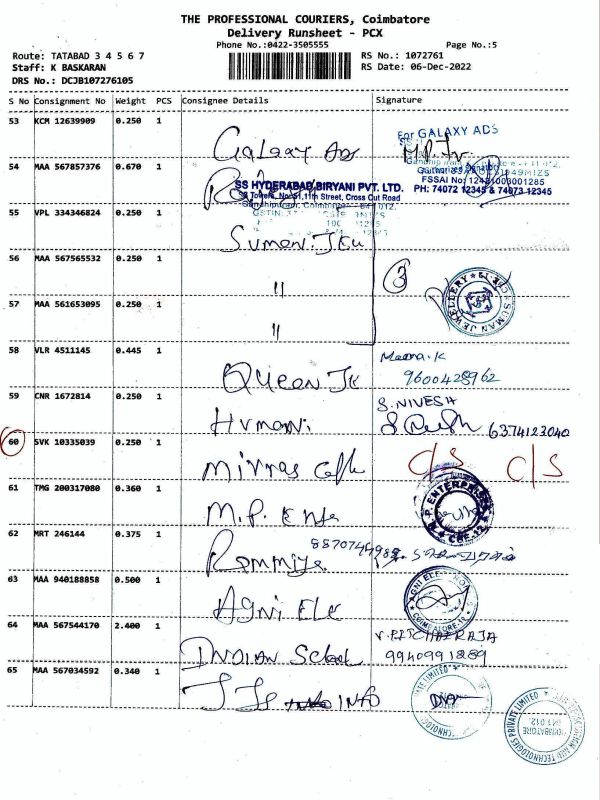 THE PROFESSIONAL COURIERS, Coimbatore
Delivery Runsheet - PCX
Phone No.:0422-3505555 Page No.:5
Route: TATABAD 3 4 5 6 7 RS No.: 1072761
Staff: K BASKARAN RS Date: 06-Dec-2022
DRS No.: DCJB107276105
S No Consignment No Weight PCS Consignee Details Signature
53 KCM 12639909 0.250 1
Galaxy ADS
For GALAXY ADS
54 MAA 567857376 0.670 1
SS HYDERABAD BIRYANI PVT. LTD.
SS Towers, No:51,11th Street, Cross Cut Road
FSSAI No: 12421003001285
PH: 74072 12345 & 74073 12345
55 VPL 334346824 0.250 1
Suman. Jew
56 MAA 567565532 0.250 1
"
3
SUMAN JEWELLERY
57 MAA 561653095 0.250 1
"
58 VLR 4511145 0.445 1
Queen JK
Meena.K
9600428962
59 CNR 1672814 0.250 1
Humani
S.NIVESH
6374123040
60 SVK 10335039 0.250 1
C/S C/S
61 TMG 200317080 0.360 1
M.P. Ente
P. ENTERPRISES
CBE-12
62 MRT 246144 0.375 1
Rammiya
63 MAA 940188858 0.500 1
Agni Ele
AGNI ELE
COIMBATORE
64 MAA 567544170 2.400 1
INDIAN School
V. PITCHAIRAJA
9940991889
65 MAA 567034592 0.340 1
INFO
TECHNOLOGIES PRIVATE LIMITED
COIMBATORE
641 012.